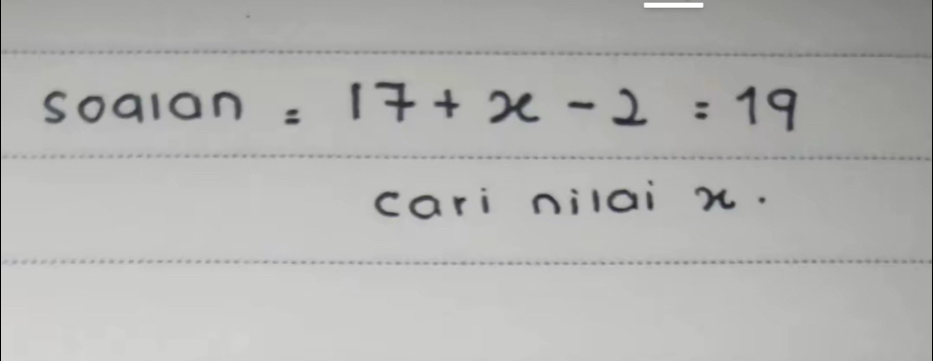 soalan = 17 + x - 2 = 19
cari nilai x.